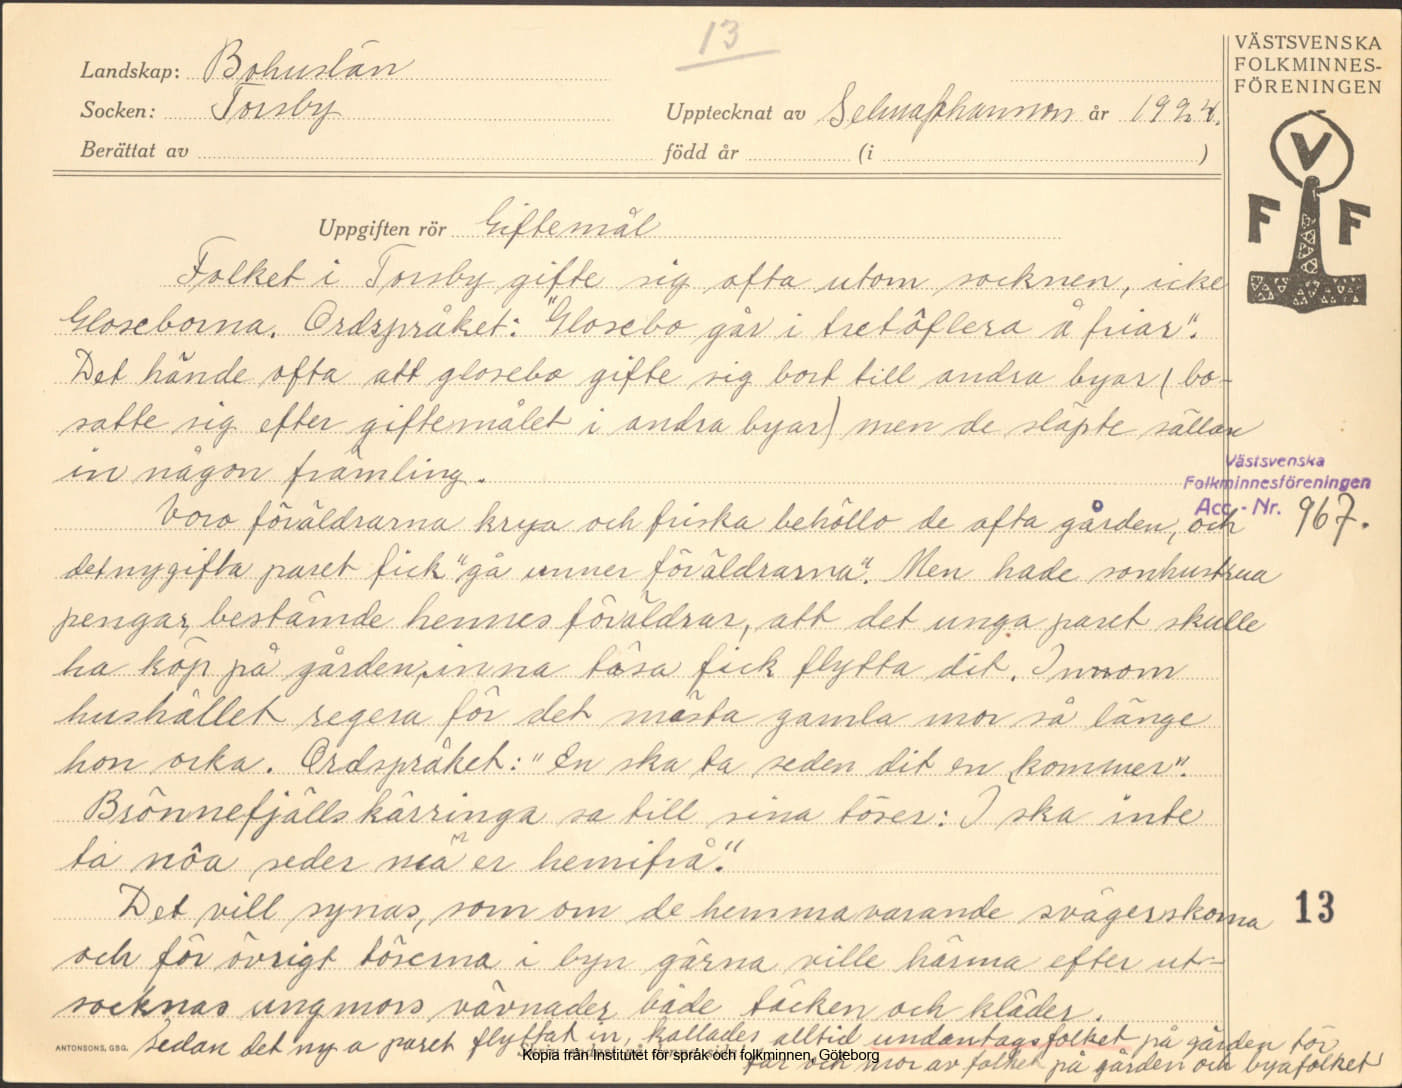 13
Landskap: Bohuslän
Socken: Torsby
Upptecknat av Selma Johansson år 1924.
Berättat av född år (i )
VÄSTSVENSKA
FOLKMINNES-
FÖRENINGEN
V
F F
Uppgiften rör Giftemål
Folket i Torsby gifte sig ofta utom socknen, icke
Gloseborna. Ordspråket: "Glosebo går i tretôflera å friar".
Det hände ofta att glosebo gifte sig bort till andra byar (bo-
satte sig efter giftemålet i andra byar) men de släpte sällan
in någon främling.
Västsvenska
Folkminnesföreningen
Acc.-Nr. 967.
Voro föräldrarna krya och friska behöllo de ofta gården, och
det nygifta paret fick "gå unner föräldrarna". Men hade sonhustrua
pengar, bestämde hennes föräldrar, att det unga paret skulle
ha köp på gården, inna tösa fick flytta dit. Innom
hushållet regera för det mästa gamla mor så länge
hon orka. Ordspråket: "En ska ta seden dit en kommer".
Brönnefjälls kärringa sa till sina töser: I ska inte
ta nôa seder mä er hemifrå."
Det vill synas, som om de hemmavarande svägerskorna
och för övrigt töserna i byn gärna ville härma efter ut-
socknas ungmors vävnader både täcken och kläder.
13
Sedan det nya paret flyttat in, kallades alltid undantagsfolket på gården för
far och mor av folket på gården och byafolket
ANTONSONS, GBG.
Kopia från Institutet för språk och folkminnen, Göteborg